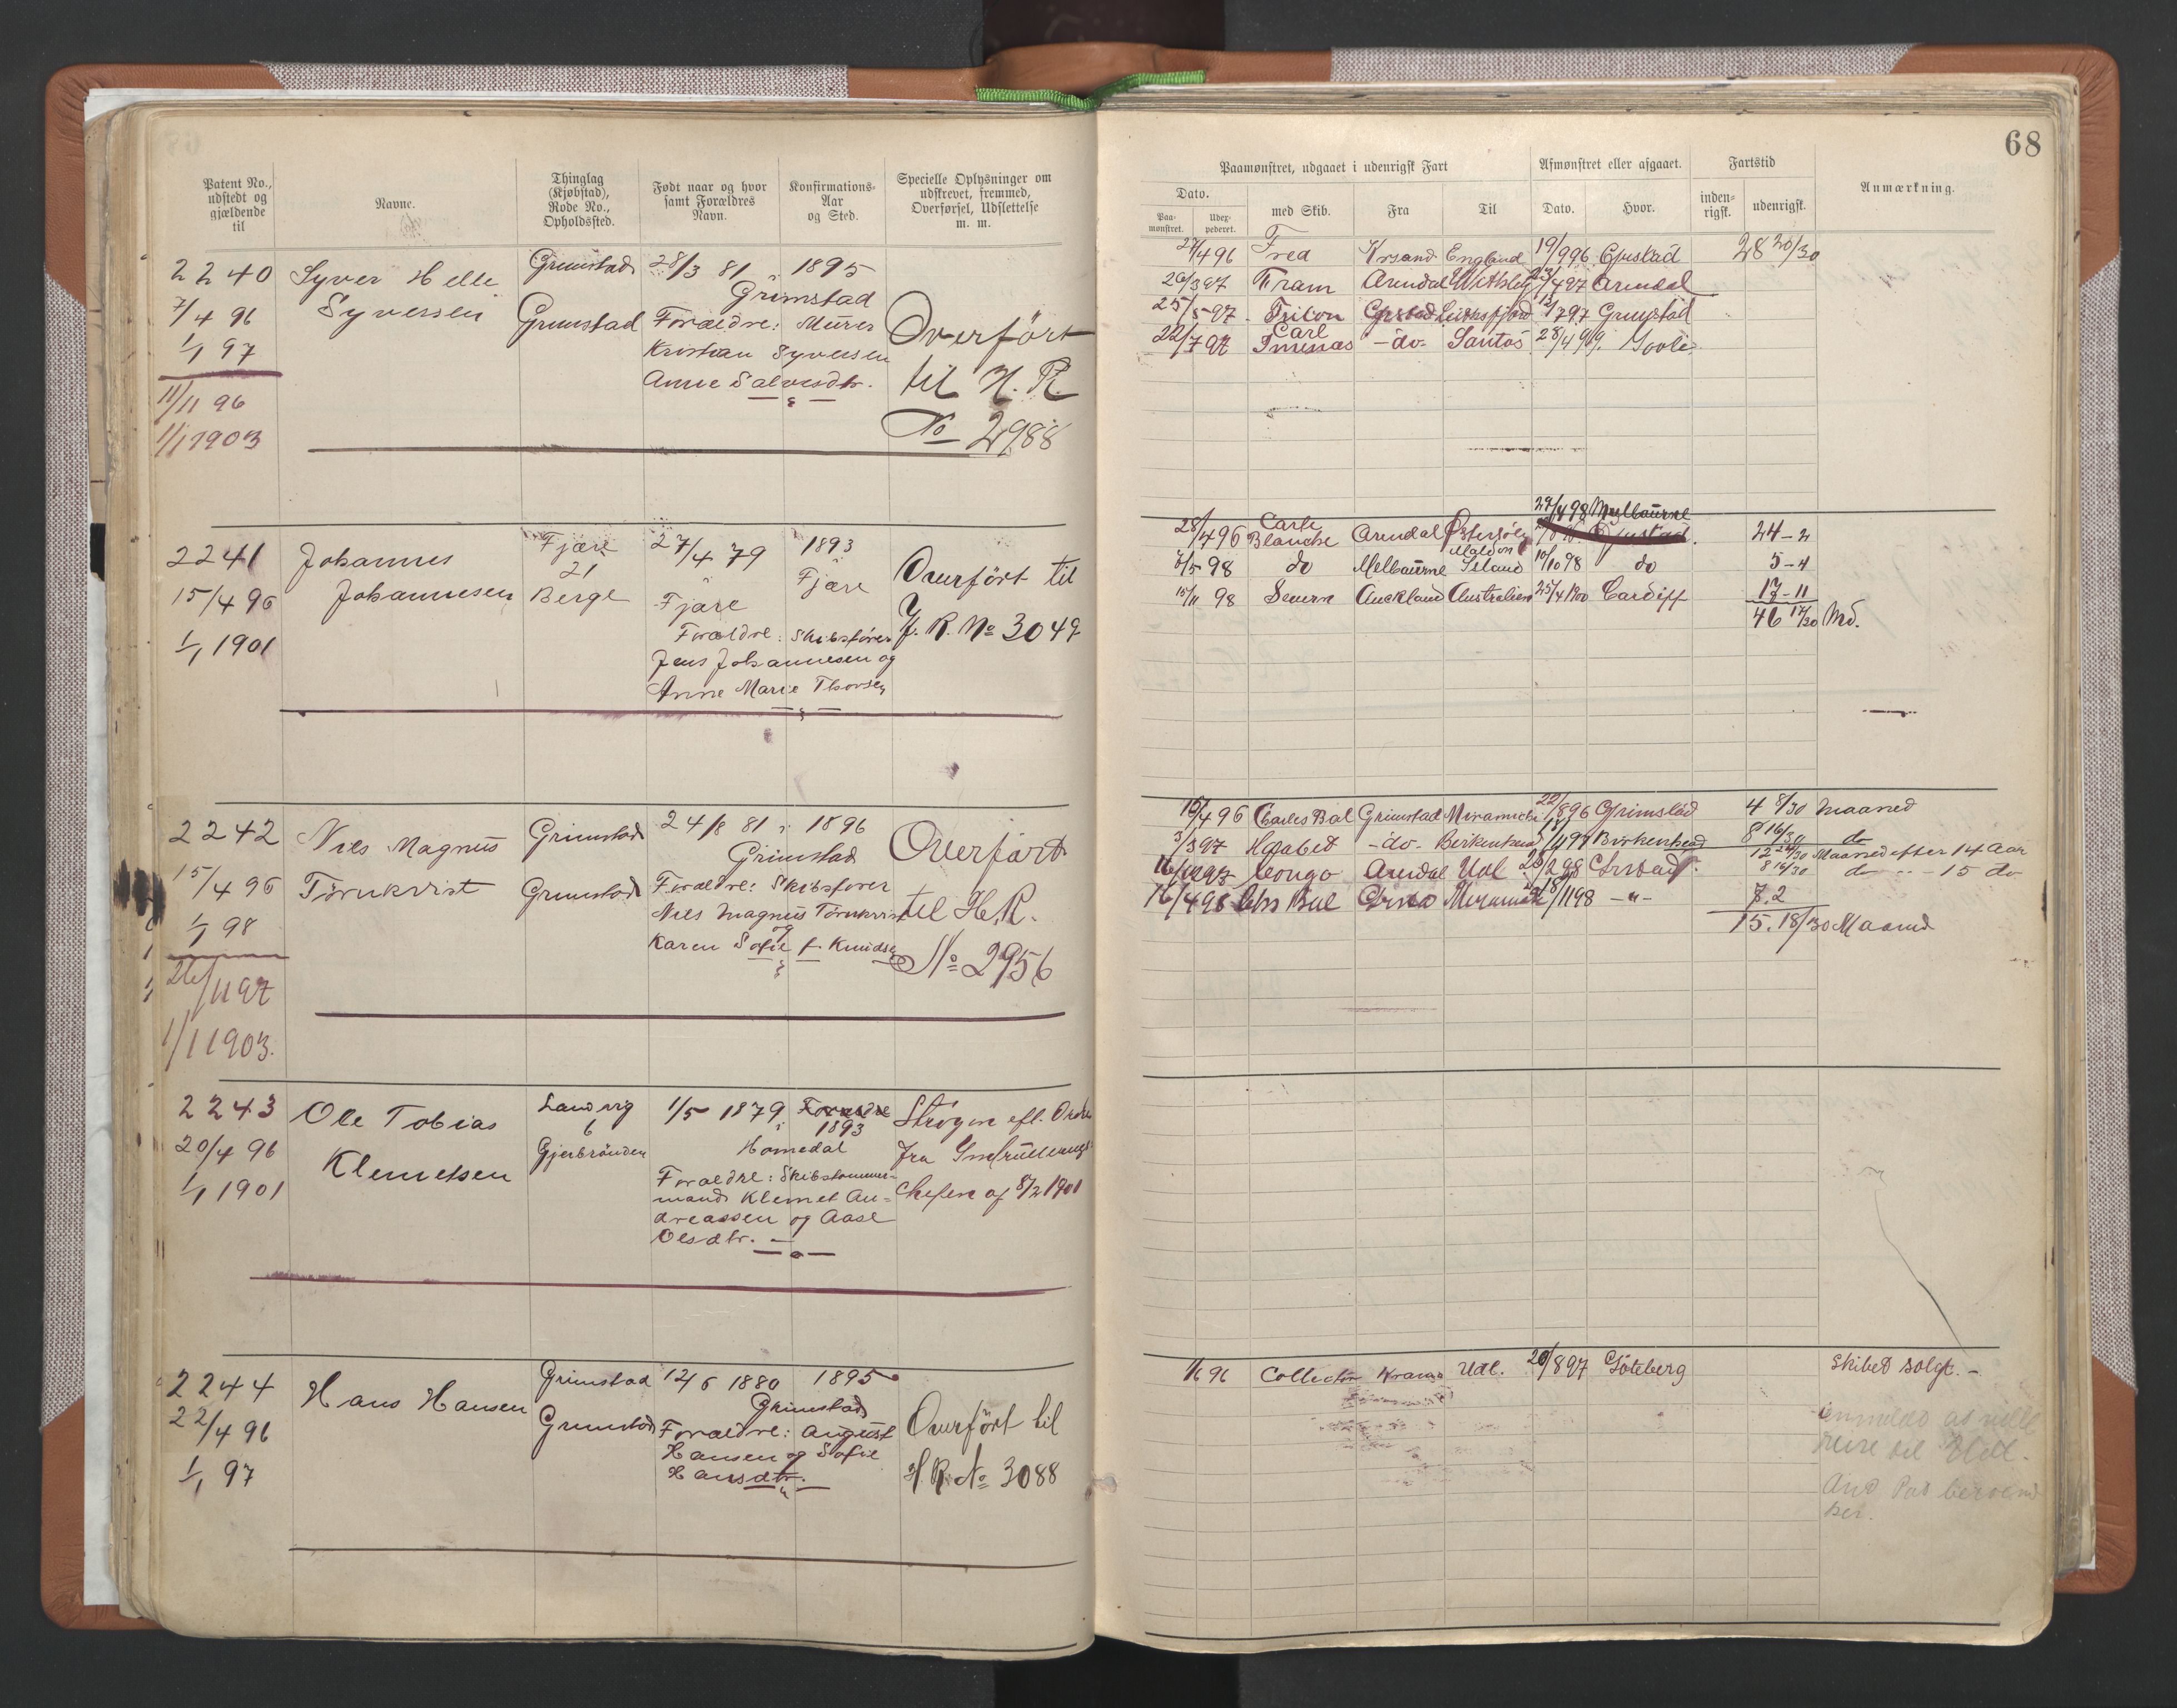 68
Patent No., udstedt og gjældende til
Navne.
Thinglag (Kjøbstad), Rode No., Opholdssted.
Født naar og hvor samt Forældres Navn.
Konfirmations-Aar og Sted.
Specielle Oplysninger om udskrevet, fremmed, Overførsel, Udslettelse m. m.
Paamønstret, udgaaet i udenrigsk Fart
Afmønstret eller afgaaet.
Fartstid
Anmærkning.
Dato.
Paa-mønstret.
Udex-pederet.
med Skib.
Fra
Til
Dato.
Hvor.
inden-rigsk.
udenrigsk.
2240
7/4 96
1/1 97
11/11 96
1/1 1903
Syver Helle
Syversen
Grimstad
Grimstad
28/3 81 i 1895
Grimstad
Forældre: Murer
Kristian Syversen
Anne Salvesdtr.
Overført
til H. R.
No 2988
27/4 96 Fred Krsand England 19/9 96 Grstad 28 20/30
20/3 97 Fram Arendal 23/4 97 Arendal
25/5 97 Triton Grstad 12/7 97 Grimstad
22/7 97 Carl
-do- Santos 28/4 99. Goole
2241
15/4 96
1/1 1901
Johannes
Johannesen
Fjære
21
Berge
27/4 79 1893
Fjære Fjære
Forældre: Skibsfører
Jens Johannesen og
Anne Marie Thorsen
Overført til
H. R. No 3049
27/4 98 Melbaurne
28/4 96 Carle
Blanche Arendal Østersøen 24-2
7/5 98 do Melbaurne Maldon Island 10/10 98 do 5-4
15/11 98 Severn Auckland Australien 25/4 1900 Cardiff 17-11
46 17/30 Md.
2242
15/4 96
1/1 98
26/11 97
1/1 1903.
Nils Magnus
Törnkvist
Grimstad
Grimstad
24/8 81 i 1896
Grimstad
Forældre: Skibsfører
Nils Magnus Törnkvist
og
Karen Sofie f. Knudsen
Overført
til H.R.
No 2956
15/4 96 Charles Bal Grimstad Miramichi 22/8 96 Grimstad 4 8/30 maaned
3/3 97 Haabet -do- Birkenhead Birkenhead 8 16/30 do
12 24/30 Maaned efter 14 Aar
16/11 97 Congo Arendal Udl 28/2 98 8 14/30 do " - 15 do
16/4 98 Chs Bal Miramichi 18/11 98 -"- 7.2
15. 18/30 Maaned
2243
20/4 96
1/1 1901
Ole Tobias
Klemetsen
Landvig
6
Gjerbrønden
1/5 1879 i Forældre
1893
Homedal
Forældre: Skibstømmer-
mand Klemet An-
dreassen og Aase
Olsdtr.
Strøgen eft. Ordre
fra Indrullerings
Chefen af 8/2 1901
2244
22/4 96
1/1 97
Hans Hansen
Grimstad
Grimstad
12/6 1880 1895
Grimstad
Forældre: August
Hansen og Sofie
Hansdtr.
Overført til
H. R. No 3088
1/6 96 Collector Udl. 20/8 97 Göteberg Skibet solgt. -
anmeldt at ville
reise til Udl.